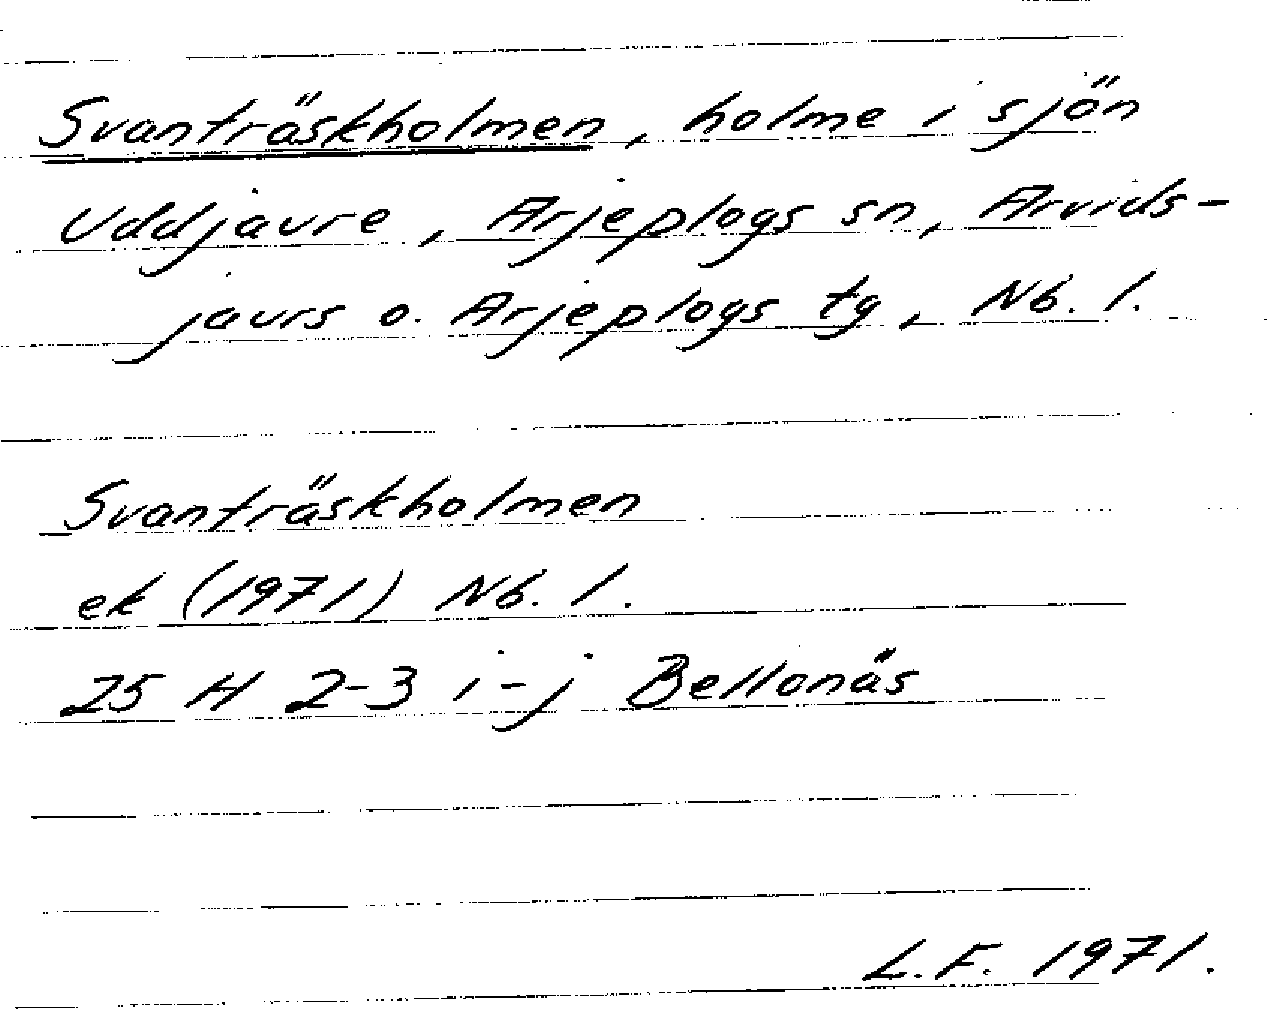 Svanträskholmen, holme i sjön
Uddjaure, Arjeplogs sn, Arvids-
jaurs o. Arjeplogs tg, Nb. l.
Svanträskholmen
ek (1971) Nb. l.
25 H 2-3 i-j Bellonäs
L.F. 1971.